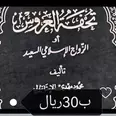 تحفة العروس
أو
الزواج الإسلامي السعيد
تأليف
محمود مهدي
ب30ريال